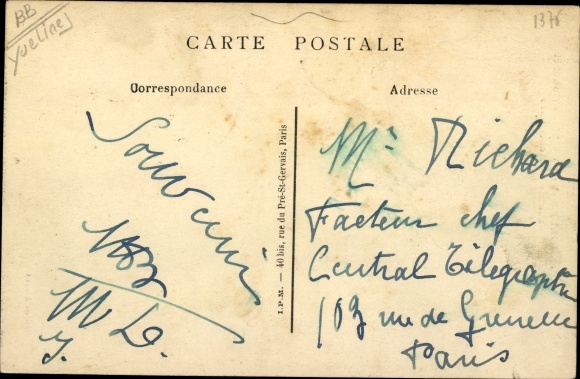 BB
Yvelines
1376
CARTE POSTALE
Correspondance
Adresse
Souvenir
M D.
I.P.M. — 40 bis, rue du Pré-St-Gervais, Paris
Mr Richard
Facteur chef
Central Télégraphe
103 rue de Grenelle
Paris